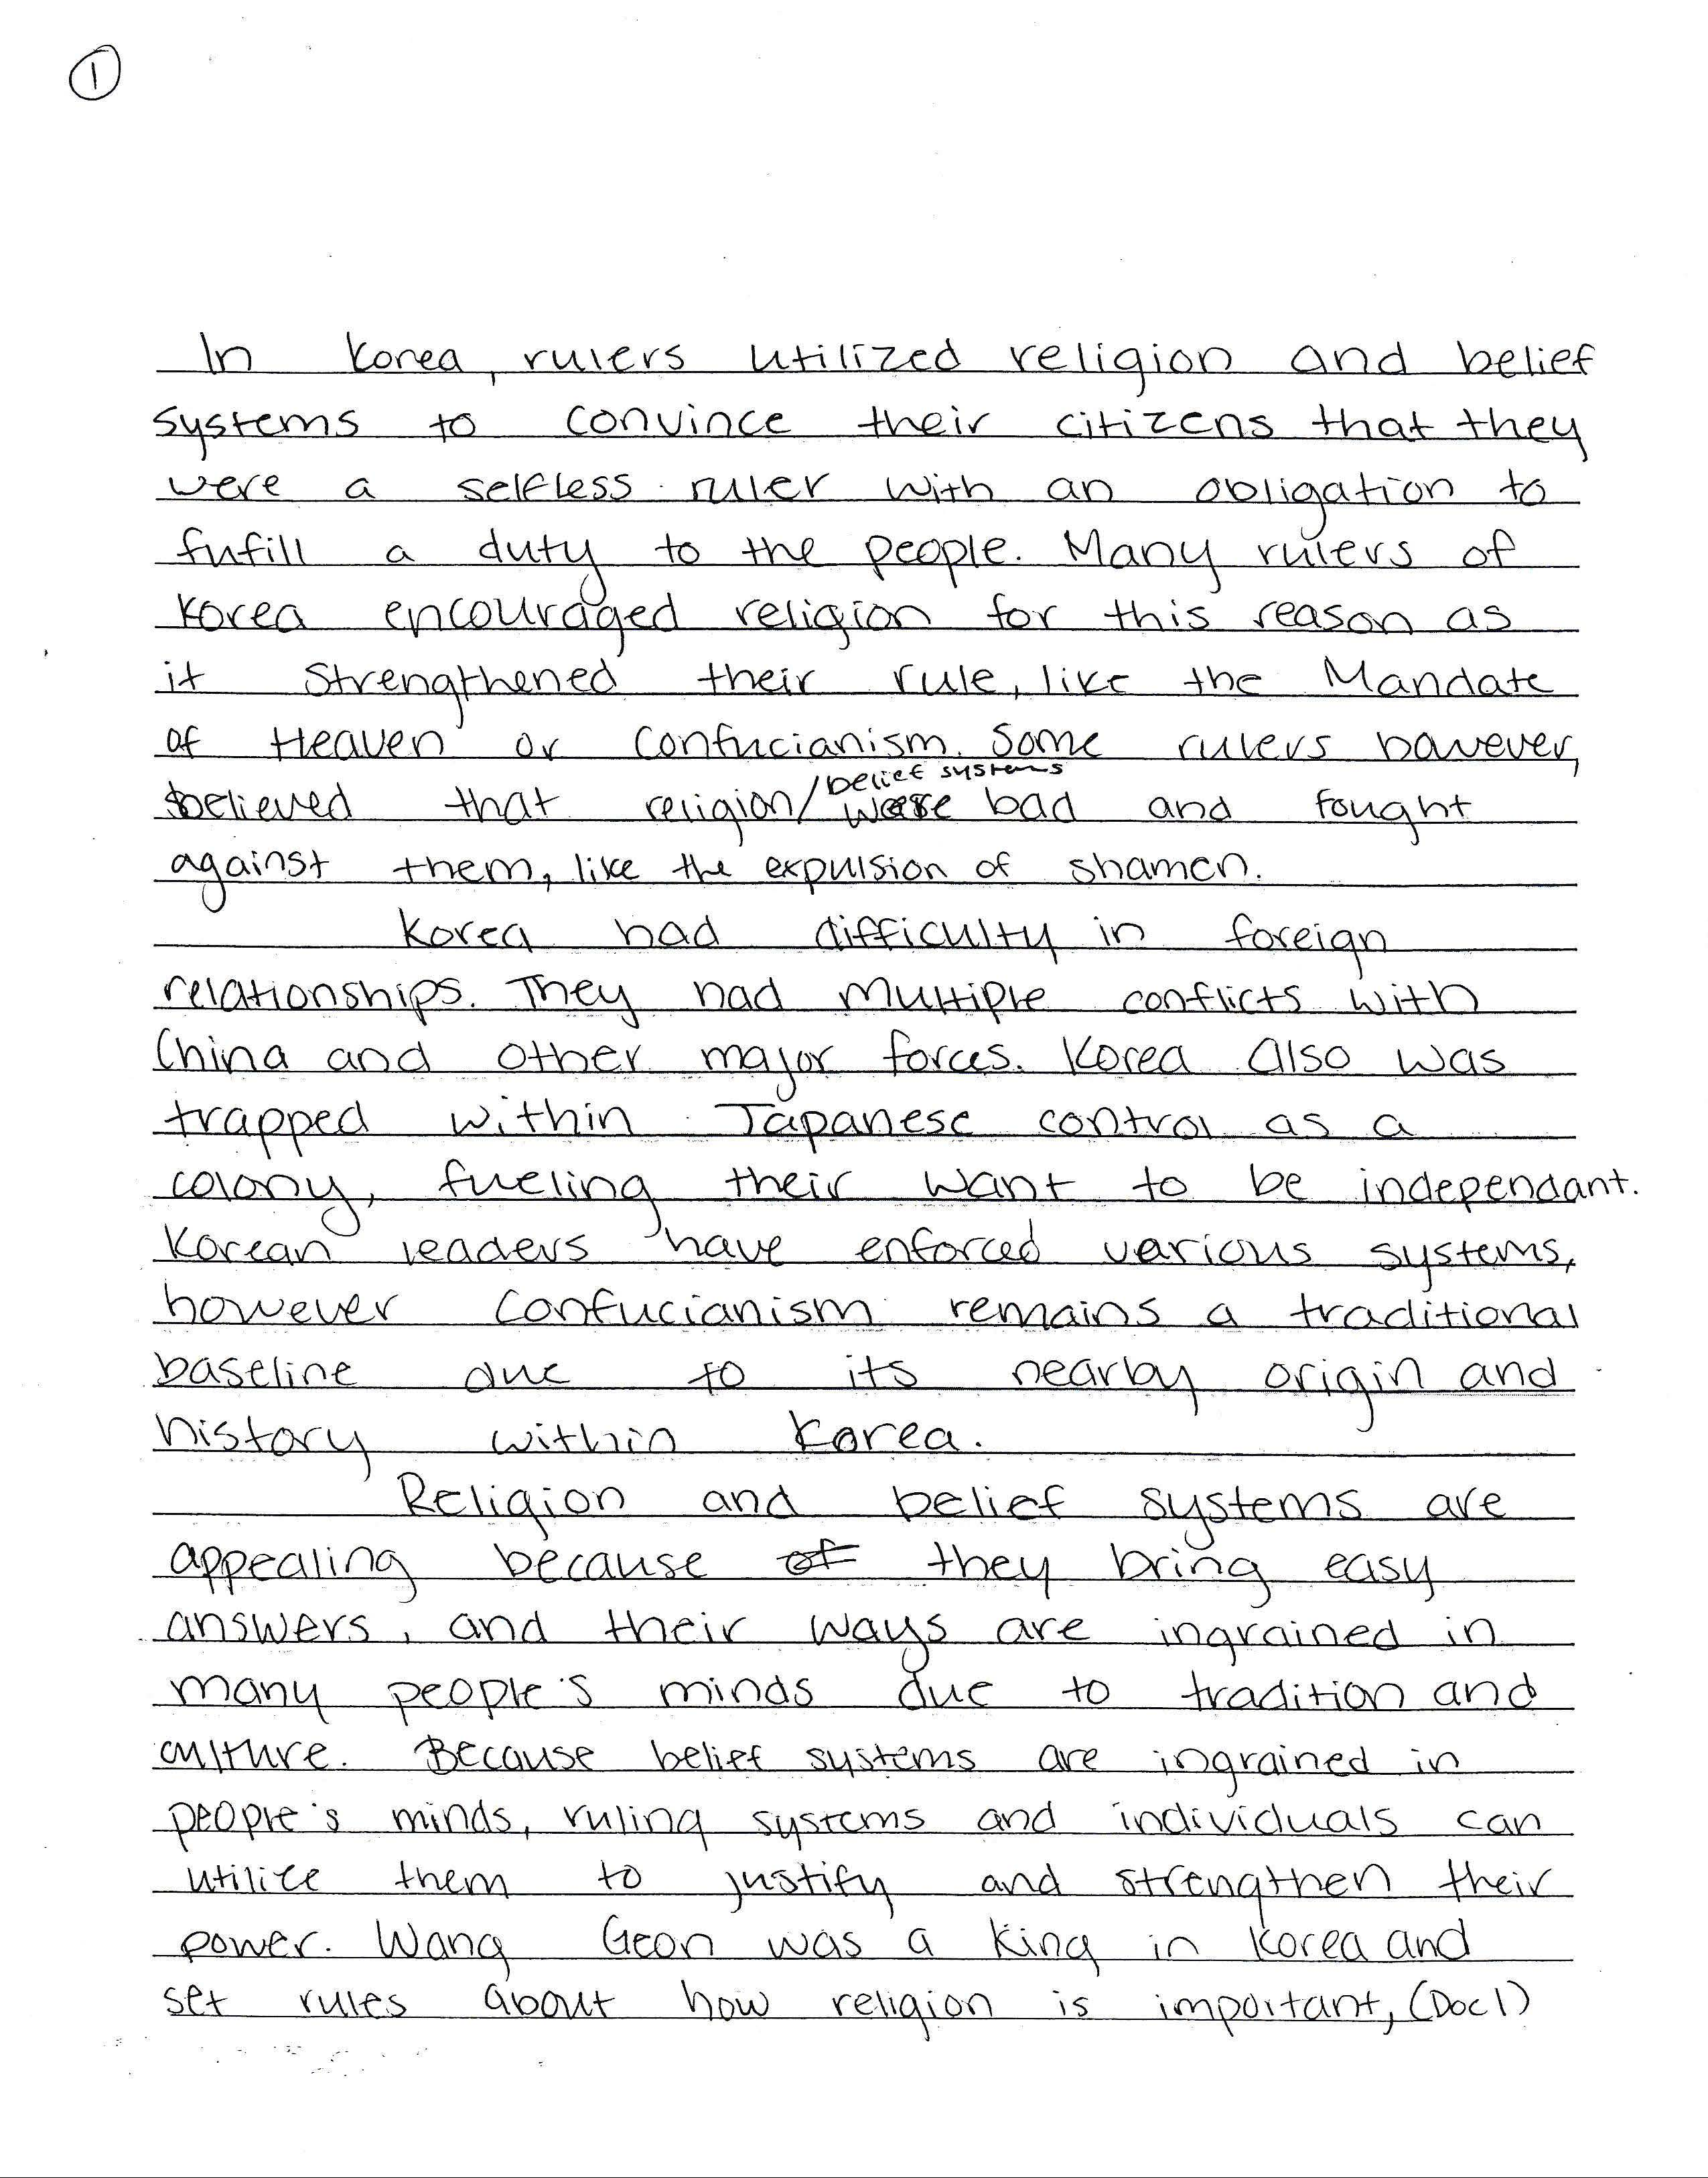 1
In Korea, rulers utilized religion and belief
systems to convince their citizens that they
were a selfless ruler with an obligation to
fufill a duty to the people. Many rulers of
Korea encouraged religion for this reason as
it strengthened their rule, like the Mandate
of Heaven or Confucianism. Some rulers however,
believed that religion/belief systems were bad and fought
against them, like the expulsion of shamen.
Korea had difficulty in foreign
relationships. They had multiple conflicts with
China and other major forces. Korea also was
trapped within Japanese control as a
colony, fueling their want to be independant.
Korean leaders have enforced various systems,
however Confucianism remains a traditional
baseline due to its nearby origin and
history within Korea.
Religion and belief systems are
appealing because of they bring easy
answers, and their ways are ingrained in
many people's minds due to tradition and
culture. Because belief systems are ingrained in
people's minds, ruling systems and individuals can
utilize them to justify and strengthen their
power. Wang Geon was a king in Korea and
set rules about how religion is important, (Doc 1)